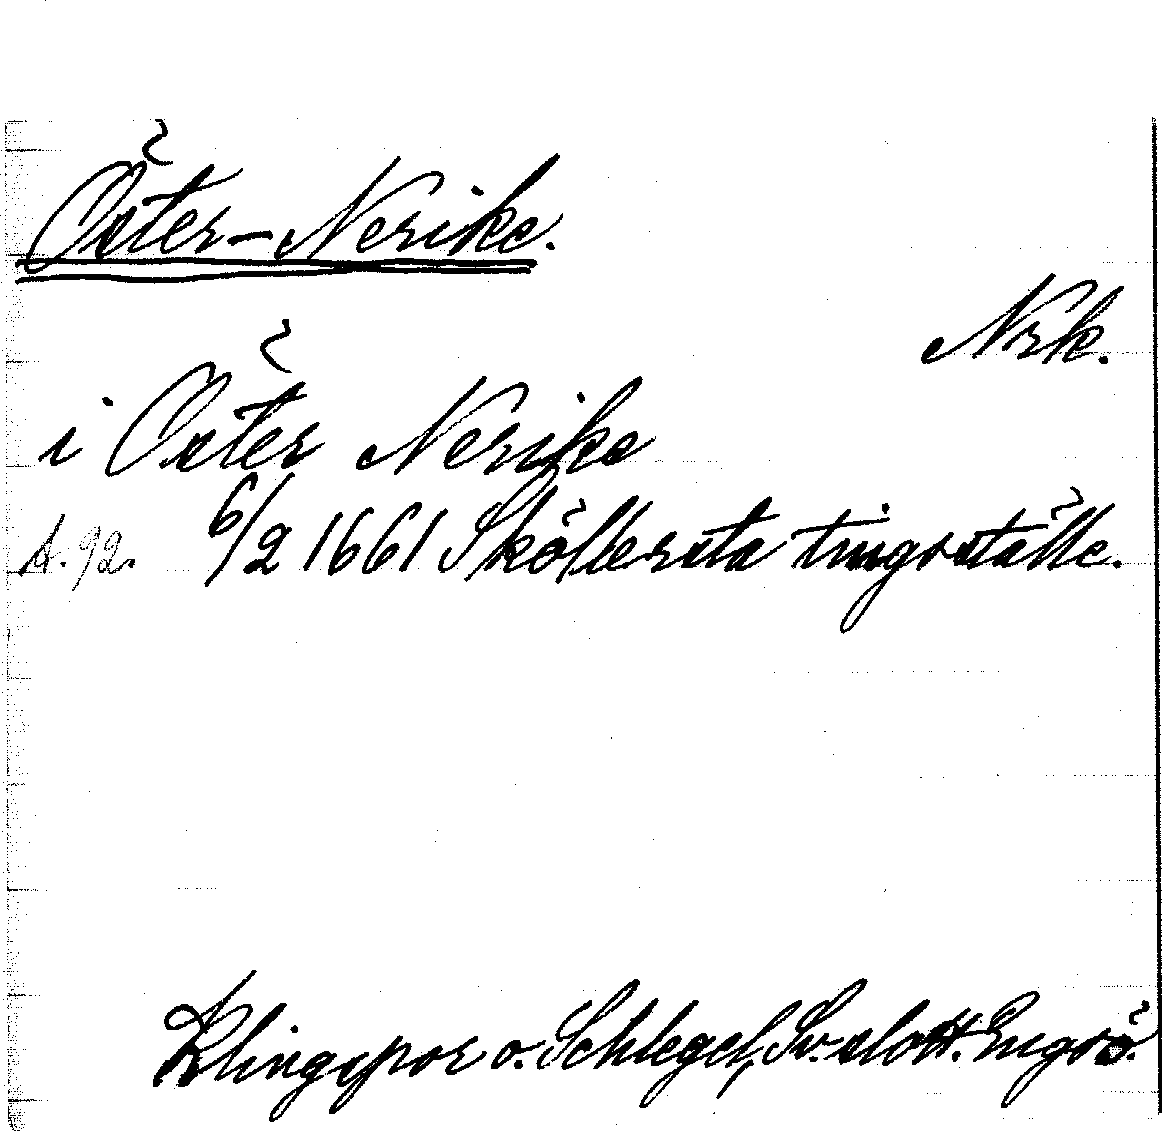 Öster-Nerike.
Nrk.
i Öster Nerike
A. 92. 6/2 1661 Sköllersta tingsställe.
Klingspor o. Schlegel, Sv. slott. Engsö.